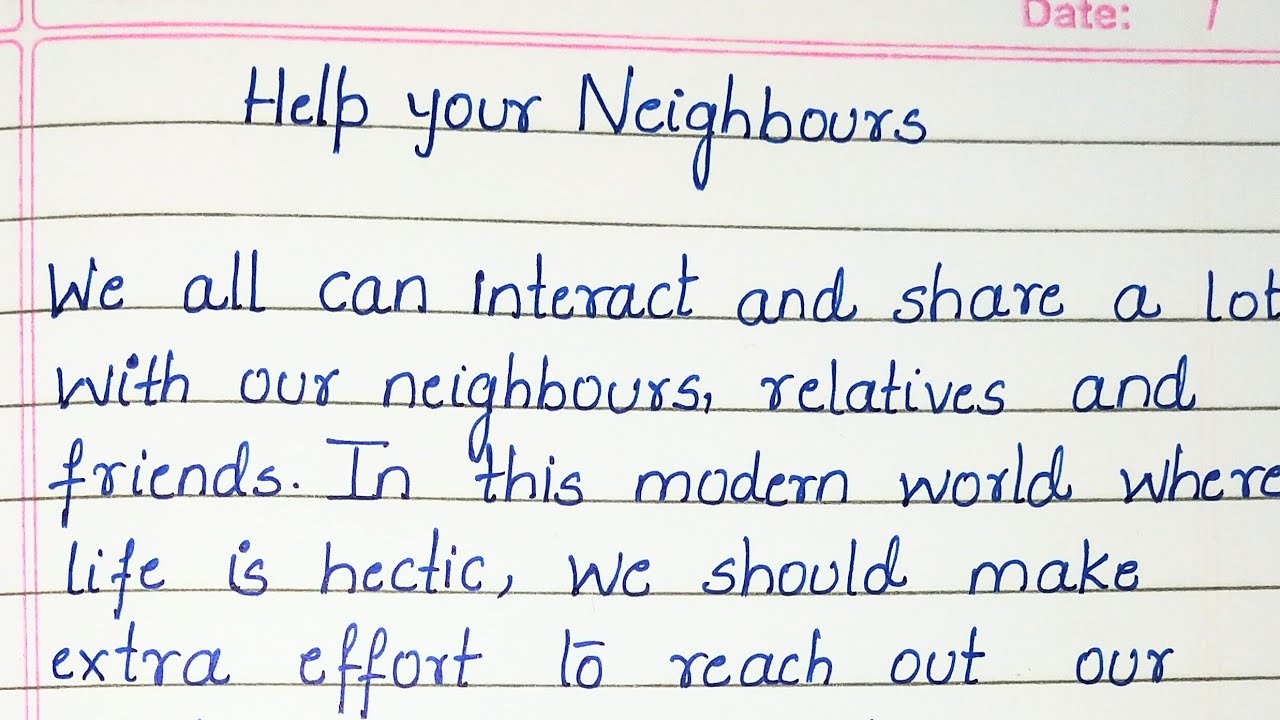 Date: /
Help your Neighbours
We all can interact and share a lot
with our neighbours, relatives and
friends. In this modern world where
life is hectic, we should make
extra effort to reach out our